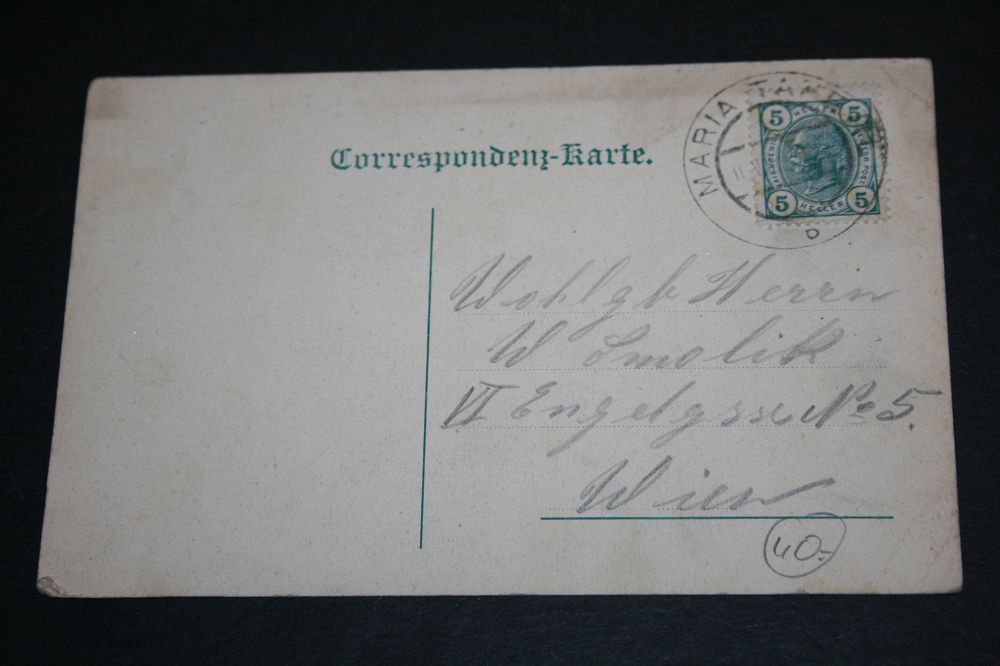 Correspondenz-Karte.
MARIA TAF
b
5 HELLER 5
5 HELLER 5
Wohlgb Herrn
W Smolik
VI Engelgsse No 5.
Wien
40.-